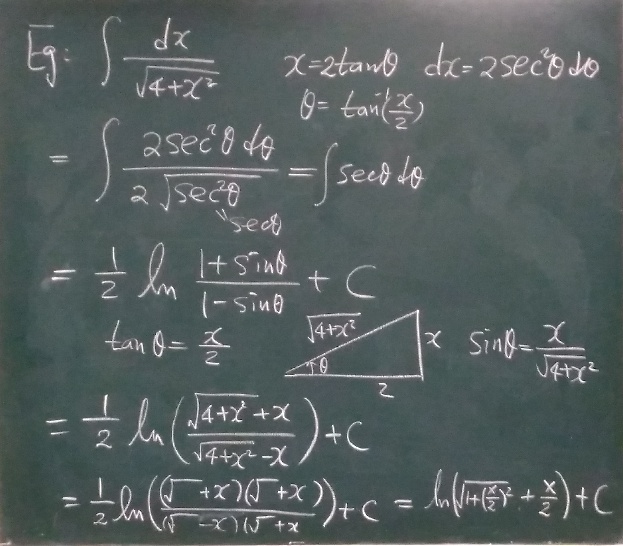 Eg: ∫ dx/√(4+x²)   x=2tanθ   dx=2sec²θ dθ
θ=tan⁻¹(x/2)
= ∫ 2sec²θ dθ / 2√(sec²θ) = ∫ secθ dθ
"secθ
= 1/2 ln (1+sinθ)/(1-sinθ) + C
tanθ = x/2   √(4+x²)   x   θ   2   sinθ = x/√(4+x²)
= 1/2 ln((√(4+x²)+x)/(√(4+x²)-x))+C
= 1/2 ln((√ +x)(√ +x)/(√ -x)(√ +x))+C = ln(√(1+(x/2)²) + x/2)+C